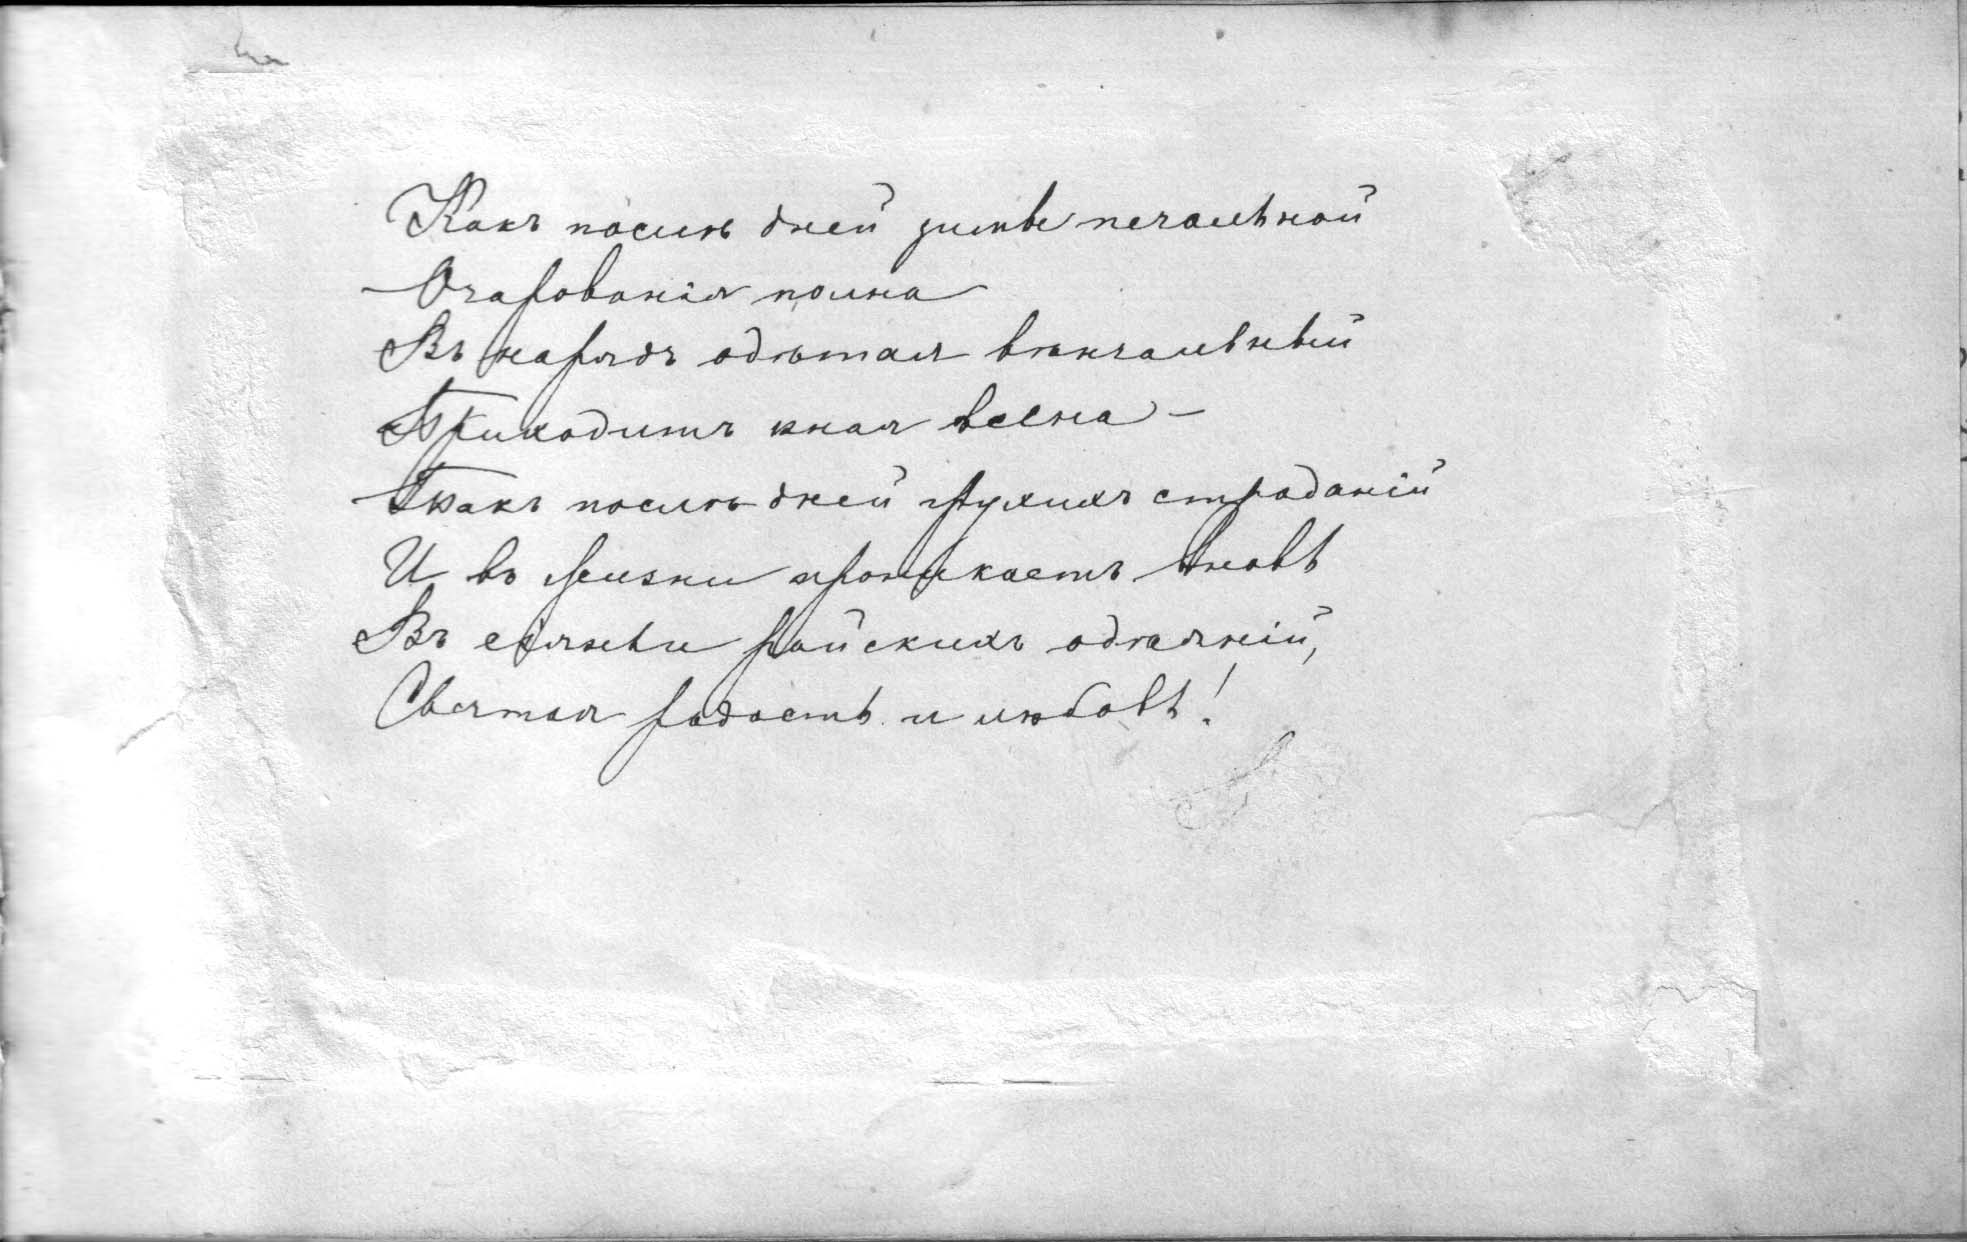 Какъ послѣ дней зимы печальной
Очарованія полна
Въ нарядъ одѣтая вѣнчальный
Приходитъ юная весна –
Такъ послѣ дней глухихъ страданій
И въ жизни проникаетъ вновь
Въ сіяньи райскихъ одѣяній,
Святая радость и любовь!